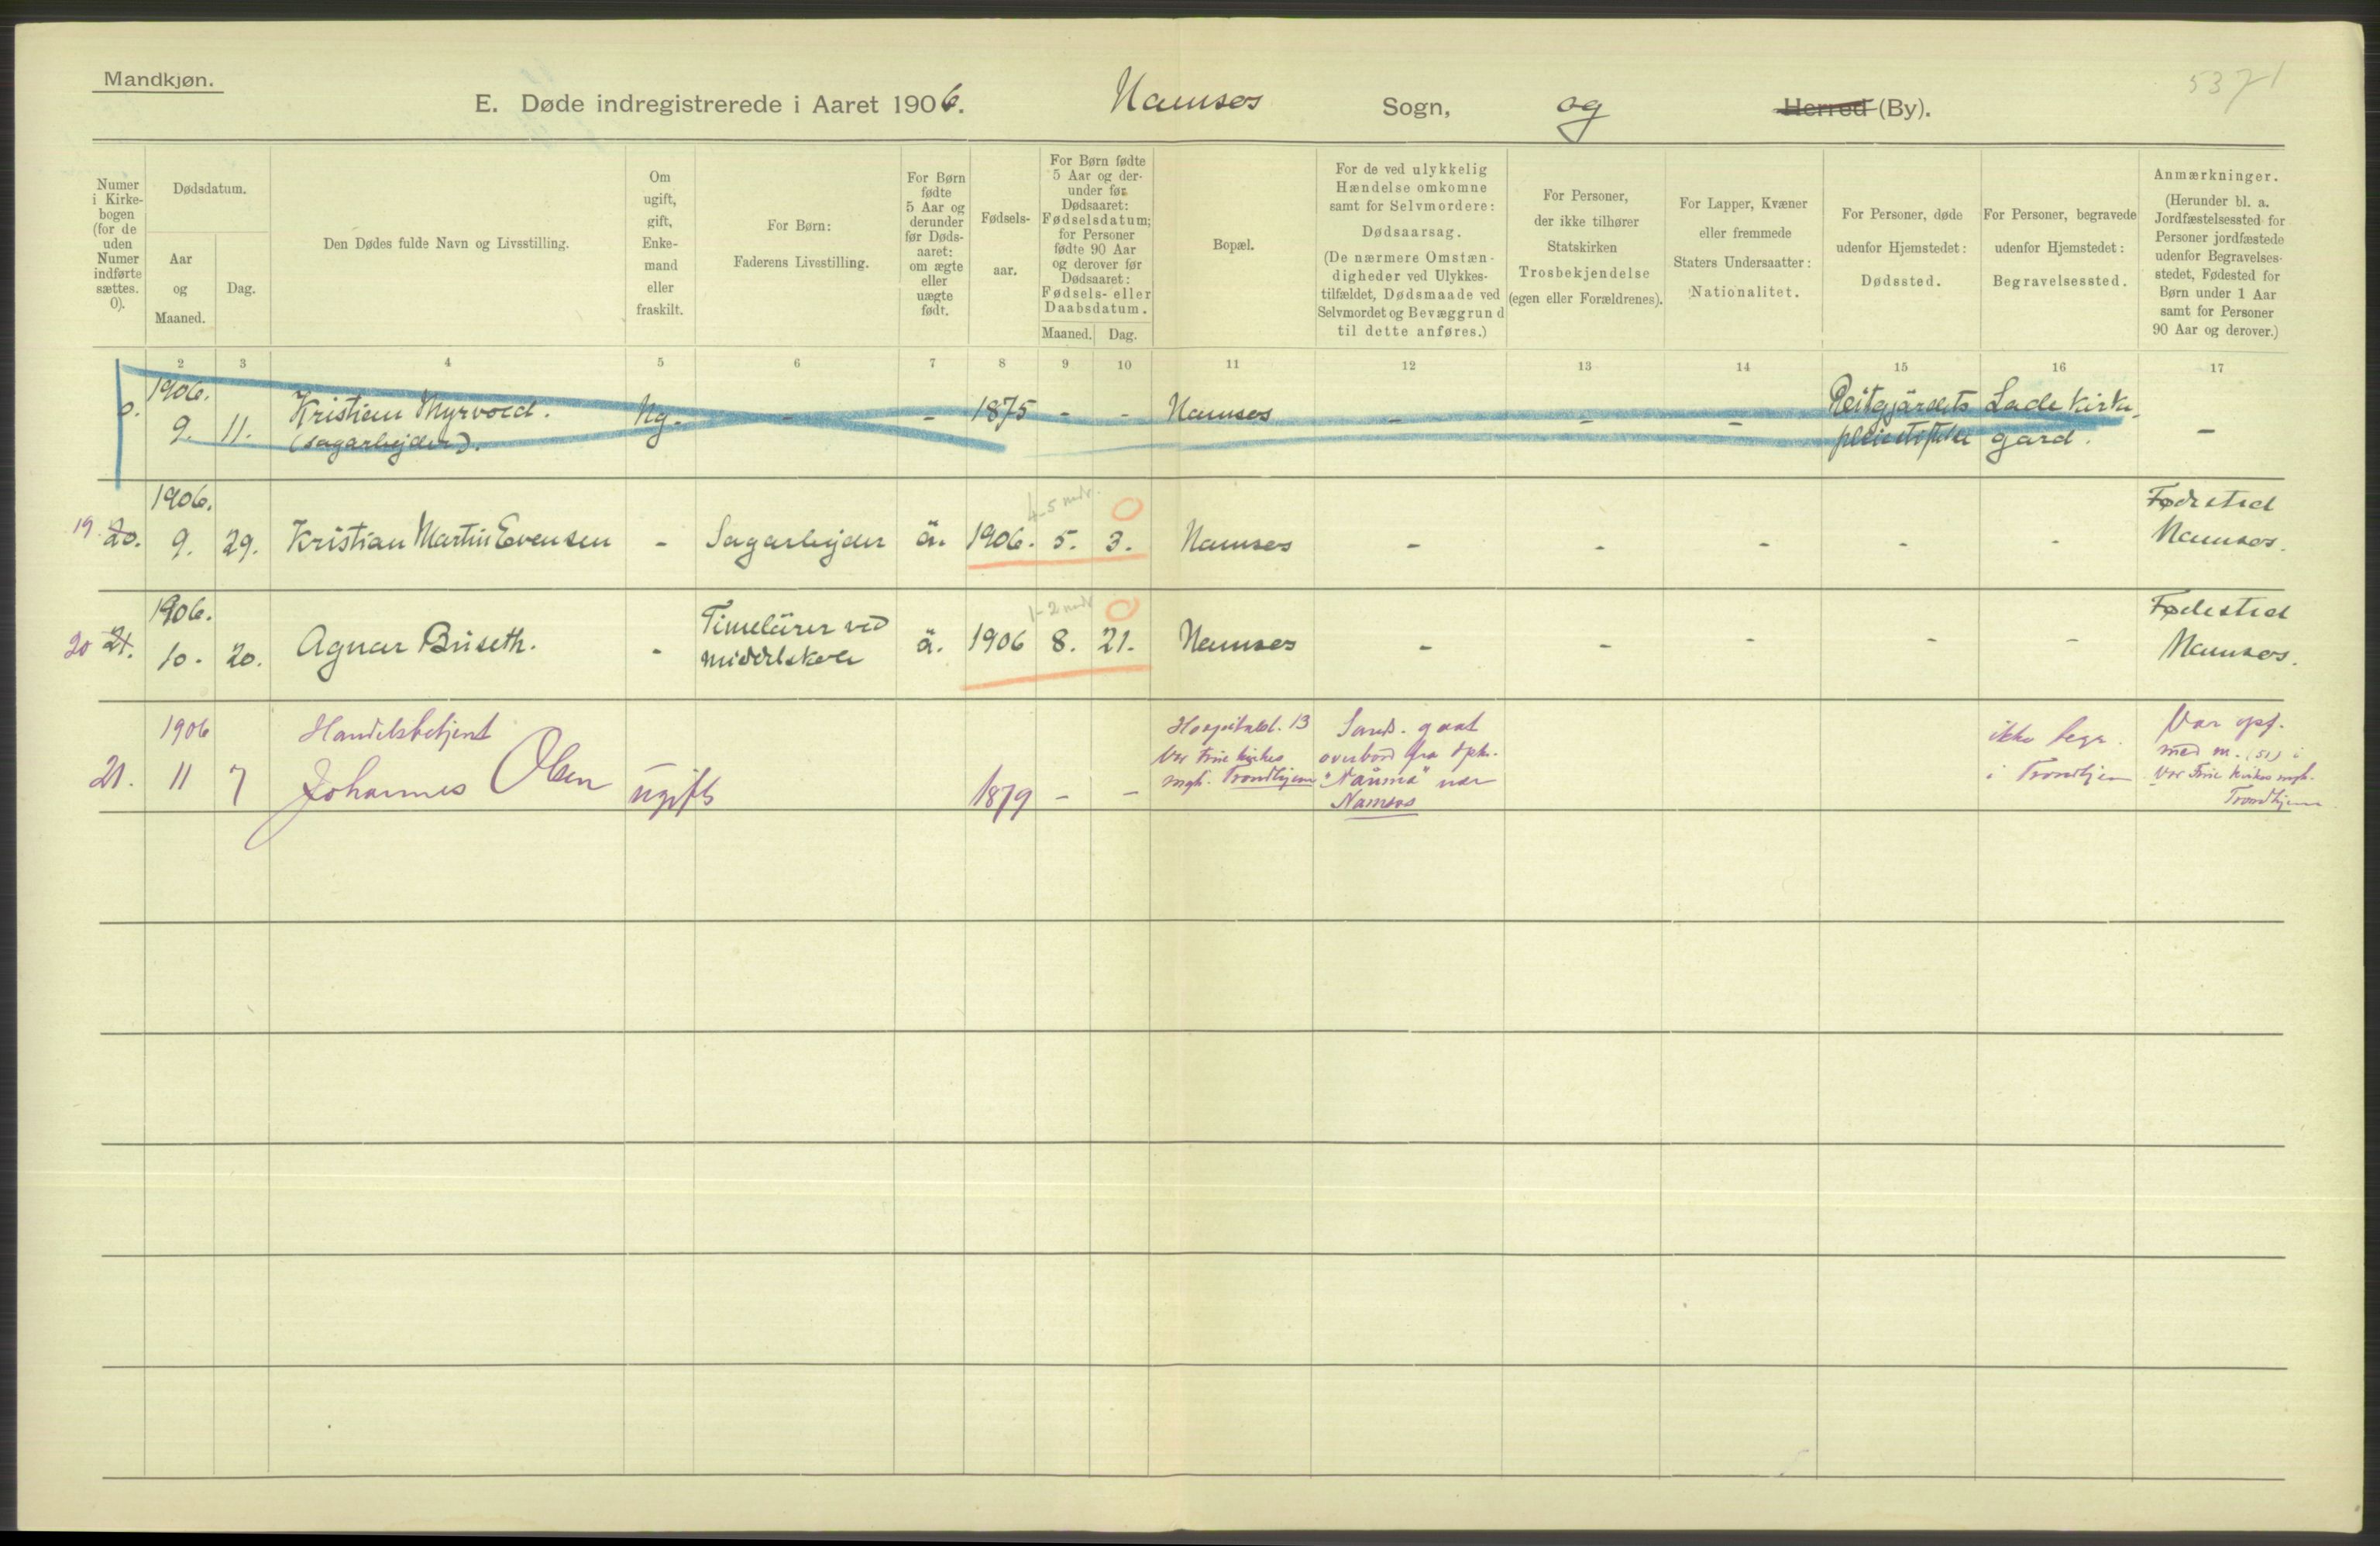 Mandkjøn.
5371
E. Døde indregistrerede i Aaret 1906. Namsos Sogn, og Herred (By).
Numer i Kirkebogen (for de uden Numer indførte sættes. 0).
Dødsdatum.
Aar og Maaned.
Dag.
Den Dødes fulde Navn og Livsstilling.
Om ugift, gift, Enkemand eller fraskilt.
For Børn: Faderens Livsstilling.
For Børn fødte 5 Aar og derunder før Dødsaaret: om ægte eller uægte født.
Fødselsaar.
For Børn fødte 5 Aar og derunder før Dødsaaret: Fødselsdatum; for Personer fødte 90 Aar og derover før Dødsaaret: Fødsels- eller Daabsdatum.
Maaned. Dag.
Bopæl.
For de ved ulykkelig Hændelse omkomne samt for Selvmordere: Dødsaarsag. (De nærmere Omstændigheder ved Ulykkestilfældet, Dødsmaade ved Selvmordet og Bevæggrund til dette anføres.)
For Personer, der ikke tilhører Statskirken Trosbekjendelse (egen eller Forældrenes).
For Lapper, Kvæner eller fremmede Staters Undersaatter: Nationalitet.
For Personer, døde udenfor Hjemstedet: Dødssted.
For Personer, begravede udenfor Hjemstedet: Begravelsessted.
Anmærkninger. (Herunder bl. a. Jordfæstelsessted for Personer jordfæstede udenfor Begravelsesstedet, Fødested for Børn under 1 Aar samt for Personer 90 Aar og derover.)
2 3 4 5 6 7 8 9 10 11 12 13 14 15 16 17
0. 1906. 9. 11. Kristian Myrvold. (sagarbejder). Ug. - - 1875 - - Namsos - - - Reitgjärdets pleiestiftelse Lade kirkegard. -
19 20. 1906. 9. 29. Kristian Martin Evensen - Sagarbejder ä. 1906. 4-5 mdr. 5. 0 3. Namsos - - - - - Fødested Namsos.
20 21. 1906. 10. 20. Agnar Buseth. - Timelärer ved middelskole ä. 1906 1-2 mdr 8. 0 21. Namsos - - - - - Fødested Namsos.
21. 1906 11 7 Handelsbetjent Johannes Olsen ugift 1879 - - Hospitalsl. 13 Vor Frue kirkes mgh. Trondhjem Sands. gaat overbord fra dpsk. "Nauma" nær Namsos ikke begr. i Trondhjem Var opf. med nr. (51) i Vor Frue kirkes mgh. Trondhjem